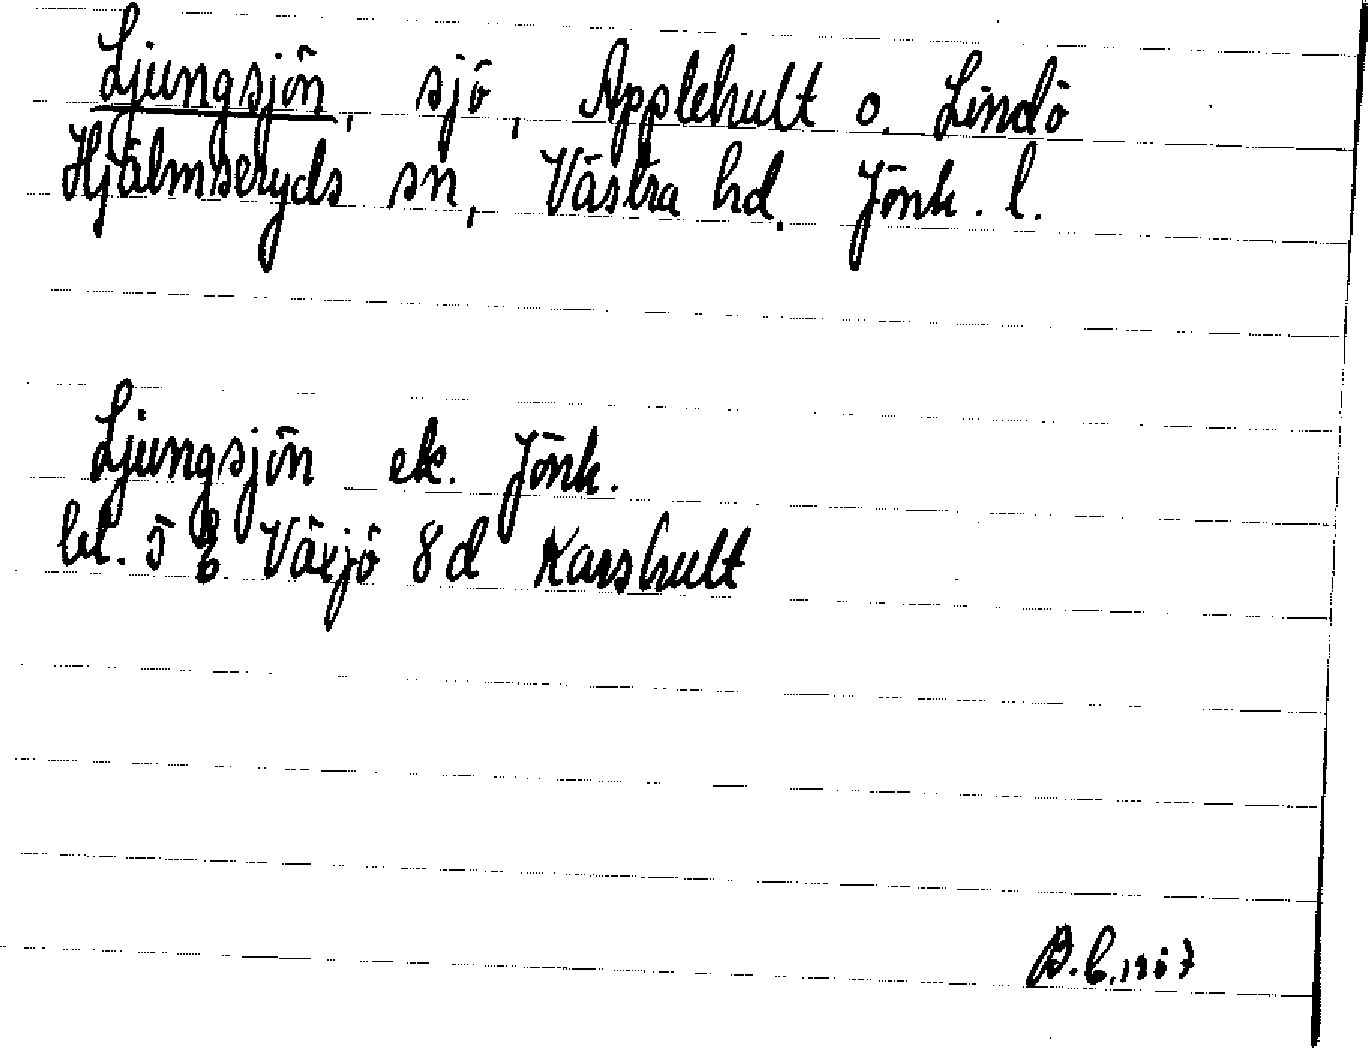 Ljungsjön, sjö, Applehult o. Lindö
Hjälmseryds sn, Västra hd. Jönk. l.
Ljungsjön ek. Jönk.
bl. 5 E Växjö 8d Karshult
B.C. 1967